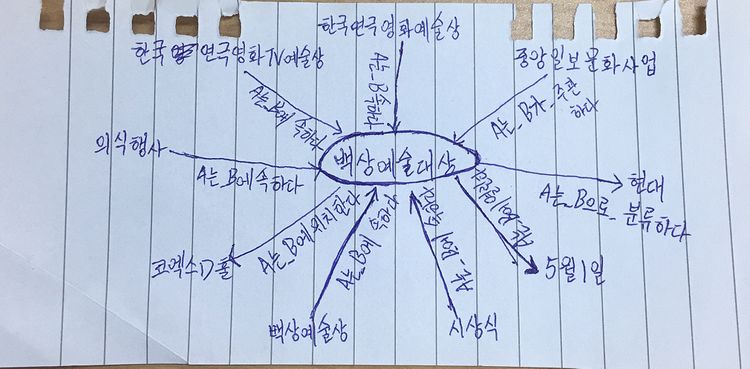 한국연극영화예술상
한국 연극영화TV예술상
중앙일보문화사업
A는_B에 속하다
A는_B속하다
A는_B가_주관
하다
의식행사
백상예술대상
A는_B에속하다
현대
A는_B으로_분류하다
A는_B에위치한다
A는_B에 속하다
A는_B에
코엑스D홀
5월1일
백상예술상
시상식